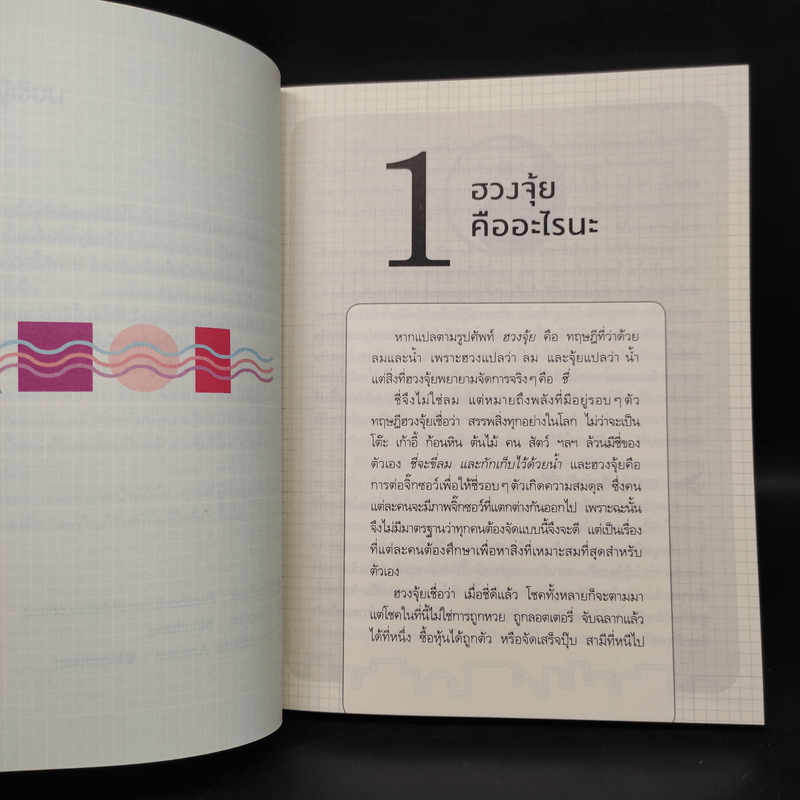 1
ฮวงจุ้ย
คืออะไรนะ
หากแปลตามรูปศัพท์ ฮวงจุ้ย คือ ทฤษฎีที่ว่าด้วย
ลมและน้ำ เพราะฮวงแปลว่า ลม และจุ้ยแปลว่า น้ำ
แต่สิ่งที่ฮวงจุ้ยพยายามจัดการจริงๆ คือ ชี่
ชี่จึงไม่ใช่ลม แต่หมายถึงพลังที่มีอยู่รอบๆ ตัว
ทฤษฎีฮวงจุ้ยเชื่อว่า สรรพสิ่งทุกอย่างในโลก ไม่ว่าจะเป็น
โต๊ะ เก้าอี้ ก้อนหิน ต้นไม้ คน สัตว์ ฯลฯ ล้วนมีชี่ของ
ตัวเอง ชี่จะขี่ลม และกักเก็บไว้ด้วยน้ำ และฮวงจุ้ยคือ
การต่อจิ๊กซอว์เพื่อให้ชี่รอบๆ ตัวเกิดความสมดุล ซึ่งคน
แต่ละคนจะมีภาพจิ๊กซอว์ที่แตกต่างกันออกไป เพราะฉะนั้น
จึงไม่มีมาตรฐานว่าทุกคนต้องจัดแบบนี้จึงจะดี แต่เป็นเรื่อง
ที่แต่ละคนต้องศึกษาเพื่อหาสิ่งที่เหมาะสมที่สุดสำหรับ
ตัวเอง
ฮวงจุ้ยเชื่อว่า เมื่อชี่ดีแล้ว โชคทั้งหลายก็จะตามมา
แต่โชคในที่นี้ไม่ใช่การถูกหวย ถูกลอตเตอรี่ จับฉลากแล้ว
ได้ที่หนึ่ง ซื้อหุ้นได้ถูกตัว หรือจัดเสร็จปุ๊บ สามีที่หนีไป